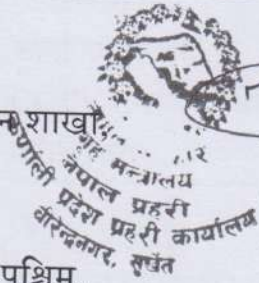 शाखा
गृह मन्त्रालय
नेपाल प्रहरी
कर्णाली प्रदेश प्रहरी कार्यालय
वीरेन्द्रनगर, सुर्खेत
पश्चिम